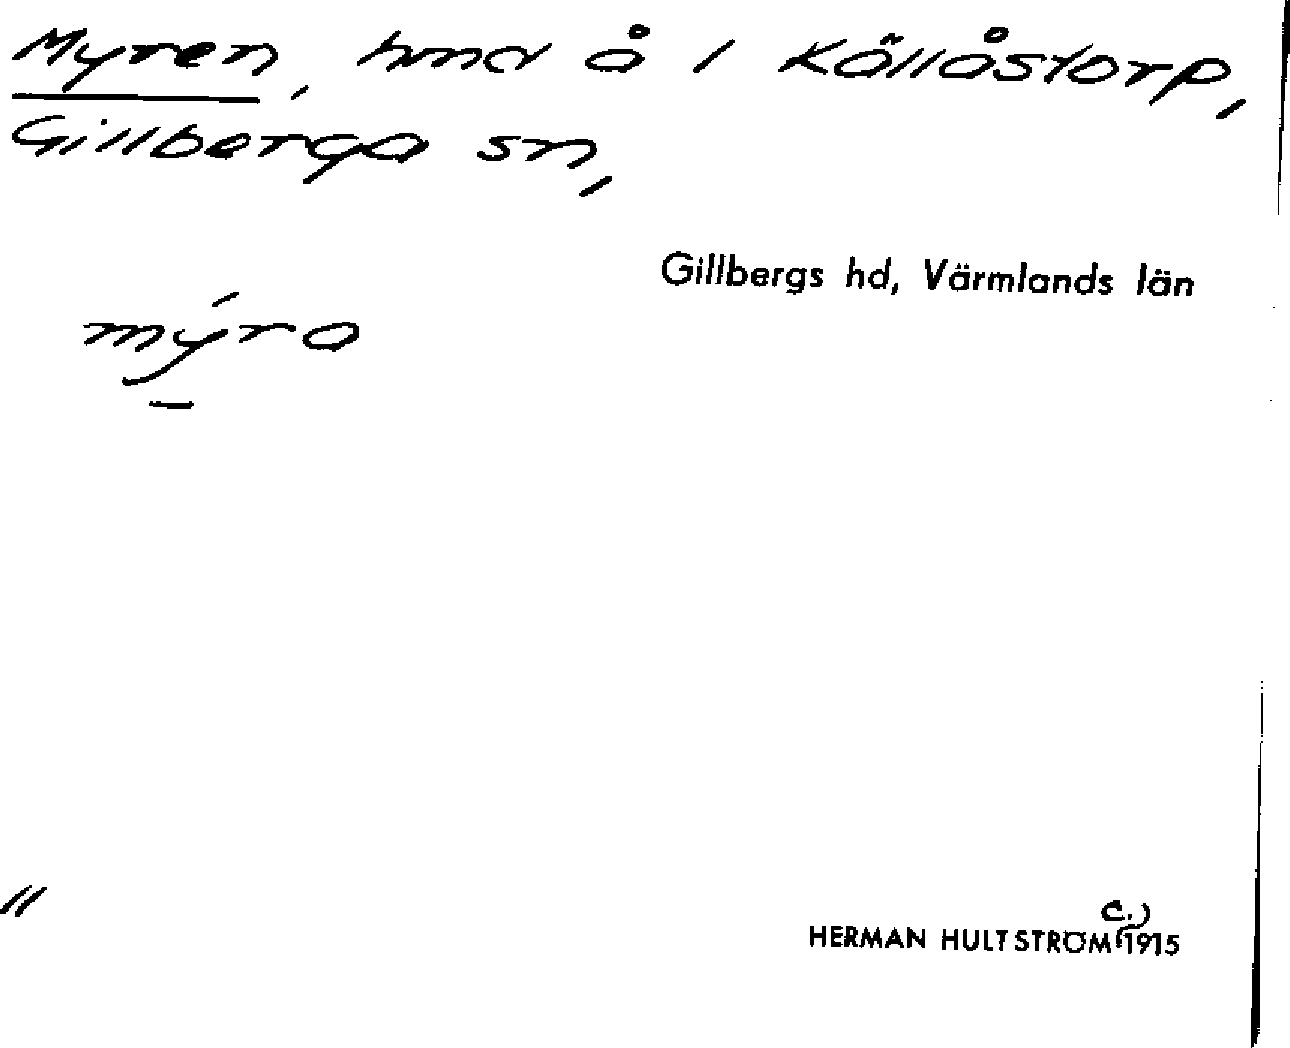 Myren, hmd å 1 Källåstorp,
Gillberga sn,
Gillbergs hd, Värmlands län
mýra
11
HERMAN HULTSTRÖM (c.) 1915